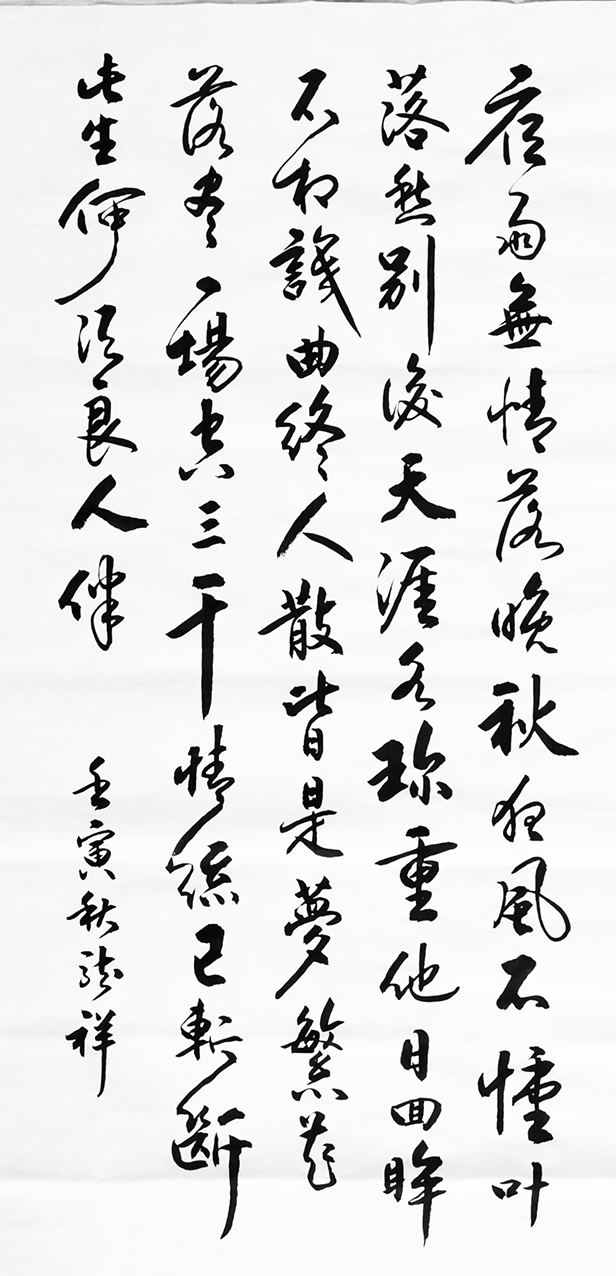 宿雨無情落晚秋狂风不懂叶
落愁别後天涯各珎重他日回眸
不相識曲终人散皆是夢繁花
落尽一場空三千情緣已斬斷
此生何须良人伴
壬寅秋龙祥